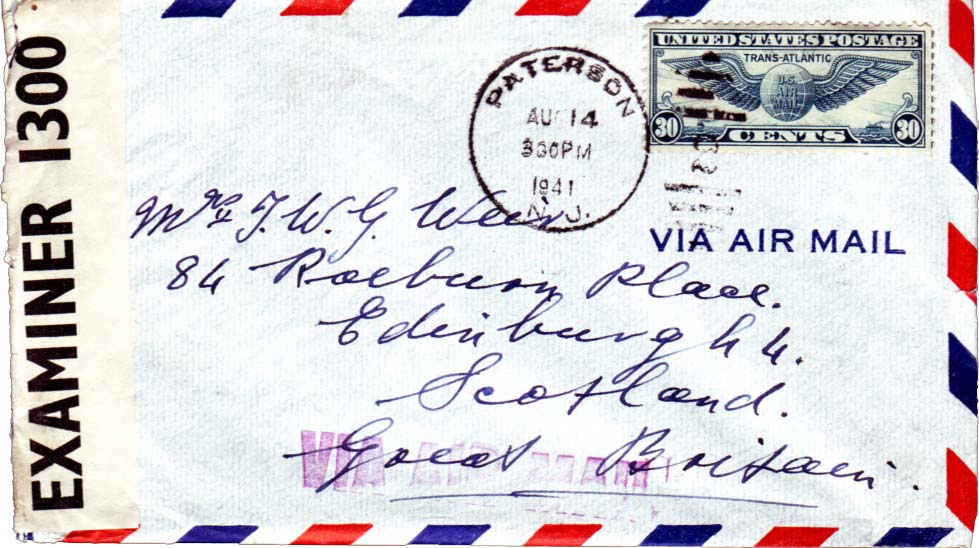 EXAMINER 1300
PATERSON
AUG 14
330PM
1941
N.J.
UNITED STATES POSTAGE
TRANS-ATLANTIC
U.S.
AIR
MAIL
30 CENTS 30
VIA AIR MAIL
Mrs J. W. G. Weir
84 Roeburn Place.
Edinburgh 4.
Scotland.
Great Britain.
VIA AIR MAIL